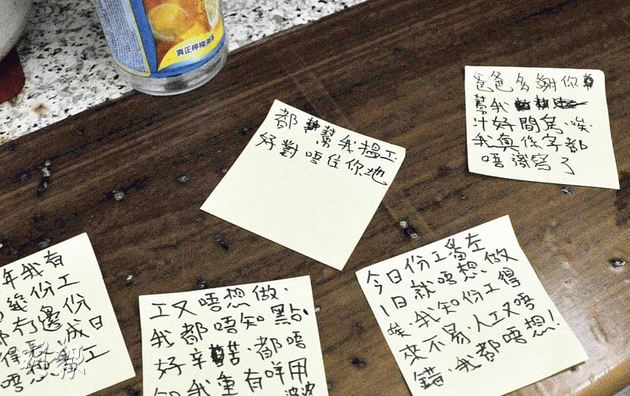 真正檸檬
都幫我搵工
好對唔住你地
爸爸多謝你
幫我
汁好間 唉
我真係字都
唔識寫了
年我有
幾份工
冇邊份
成日
唔想 工
工又唔想做.
我都唔知點
好辛苦,都唔
我重有咩用
今日份工番左
1日就唔想做
唉我知份工得
來不易,人工又唔
錯,我都唔想!